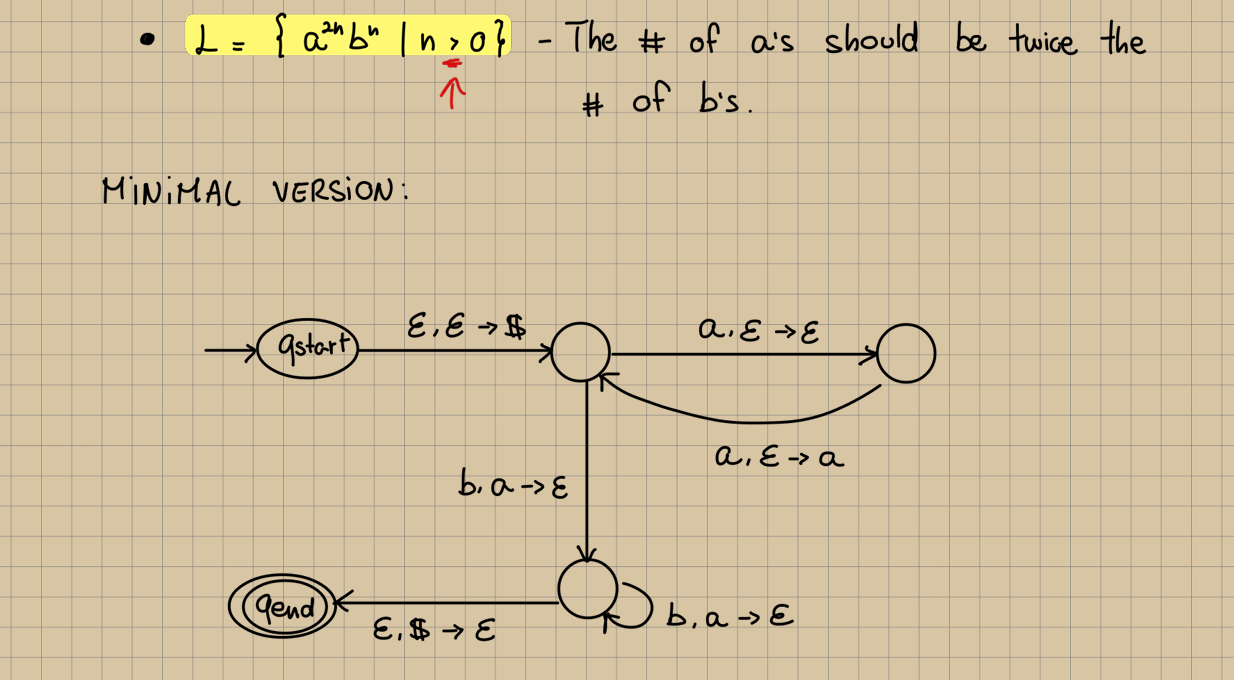 • L = { a²ⁿbⁿ | n > 0} - The # of a's should be twice the
# of b's.
MiNiMAL VERSiON:
qstart
ε, ε → $
a, ε → ε
a, ε → a
b, a → ε
qend
ε, $ → ε
b, a → ε